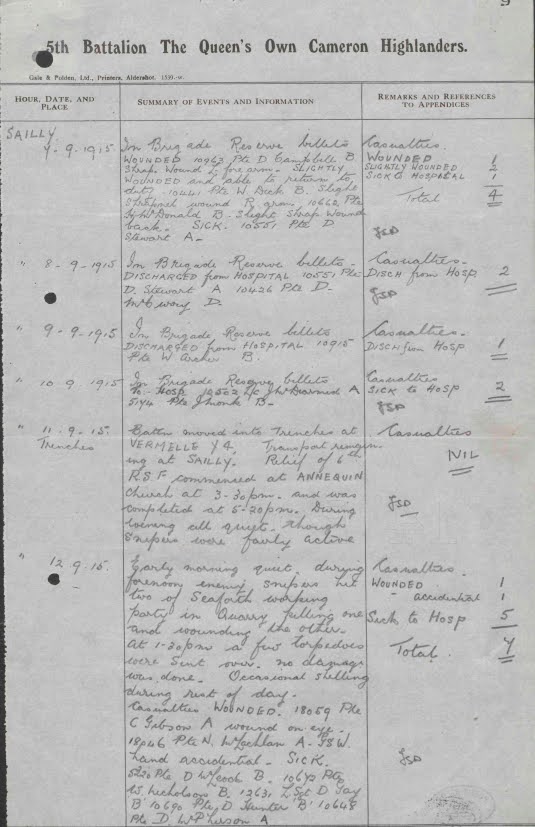 9
5th Battalion The Queen's Own Cameron Highlanders.
Gale & Polden, Ltd., Printers, Aldershot.
HOUR, DATE, AND PLACE
SUMMARY OF EVENTS AND INFORMATION
REMARKS AND REFERENCES TO APPENDICES
SAILLY
7-9-1915
In Brigade Reserve billets
WOUNDED 10963 Pte D Campbell B
Shrap Wound L forearm - SLIGHTLY
WOUNDED and able to return to
duty - 10441 Pte W Dick B. Slight
Shrapnel wound R. arm, 10662 Pte
McDonald B - Slight Shrap Wound
back - SICK. 10551 Pte D
Stewart A -
Casualties.
WOUNDED 1
SLIGHTLY WOUNDED 2
SICK to HOSPITAL 1
Total 4
JSD
" 8-9-1915
In Brigade Reserve billets -
DISCHARGED from HOSPITAL 10551 Pte
D. Stewart A 10426 Pte D-
D.
Casualties -
DISCH from HOSP 2
JSD
" 9-9-1915
In Brigade Reserve billets
DISCHARGED from HOSPITAL 10915
Pte W Archer B.
Casualties -
DISCH from HOSP 1
" 10.9.1915
In Brigade Reserve billets
To Hosp L/C McDiarmid A
5174 Pte J Monk B -
Casualties
SICK to HOSP 2
JSD
" 11.9.15.
Trenches
Battn moved into Trenches at
VERMELLE Y4. Transport remain-
ing at SAILLY. Relief of 6th
R.S.F commenced at ANNEQUIN
Church at 3-30pm. and was
completed at 5-20pm. During
evening all quiet. though
snipers were fairly active
Casualties
NIL
JSD
" 12.9.15.
Early morning quiet. during
forenoon enemy snipers hit
two of Seaforth working
party in Quarry killing one
and wounding the other.
At 1-30pm a few torpedoes
were sent over. no damage
was done. Occasional shelling
during rest of day.
Casualties WOUNDED. 18059 Pte
C Gibson A wound on eye.
18046 Pte N. McLachlan A - GSW.
hand accidental - SICK.
5220 Pte D McCook B. 10672 Pte
W. Nicholson B. 12631 L Sgt D Gay
B 10690 Pte D Hunter B 10648
Pte D. McPherson A
Casualties.
WOUNDED 1
" accidental 1
Sick to Hosp 5
Total. 7
JSD